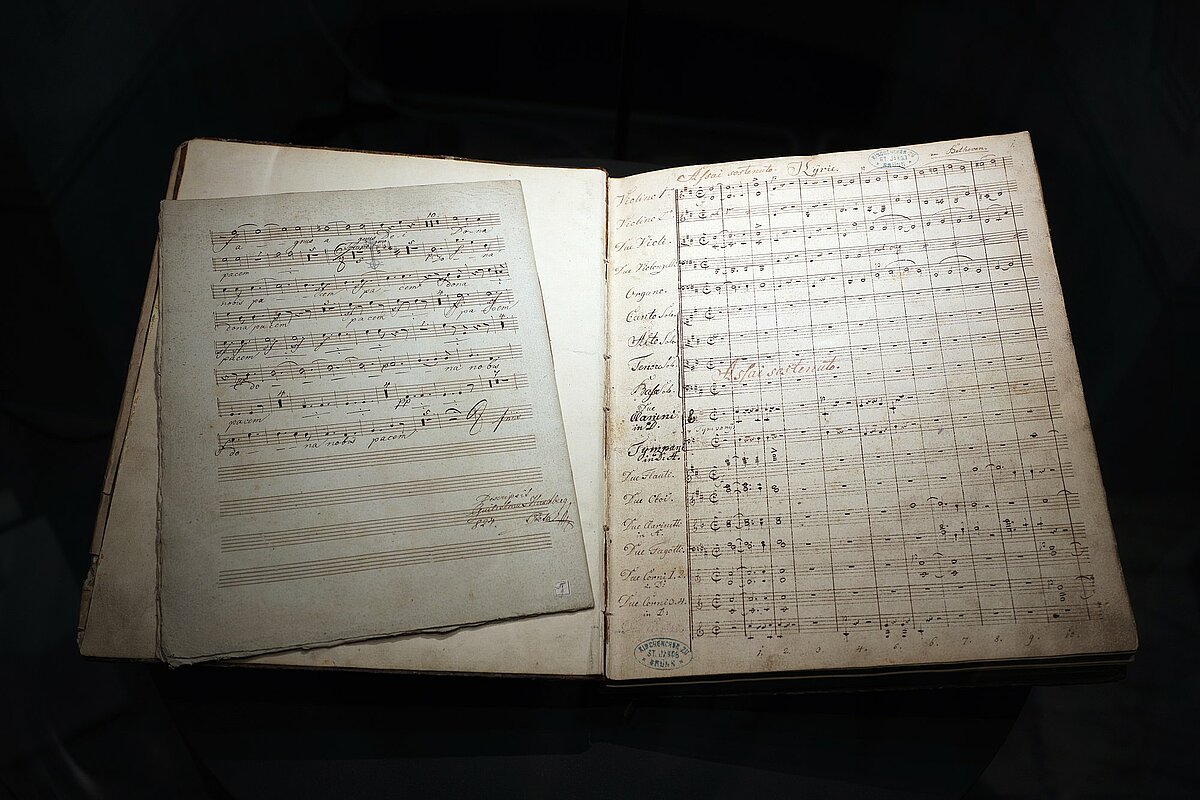 10
a gnus a Dona
pacem na
nobis pa cem pa cem dona
dona pacem pacem pa cem
pacem
do na nobis
pacem pp
do na nobis pacem finis
Descripsit
Assai sostenuto. Kyrie. Bethoven.
KIRCHENCHOR ZU
ST. JAKOB
BRÜNN
Violino 1
Violino 2
Due Viole.
Due Violoncelli
Organo.
Canto Solo
Alto Solo
Tenore Solo
Basso Solo
Assai sostenuto.
Due
Clarini
in D.
Tympani
in D. A.
Due Flauti.
Due Oboi.
Due Clarinetti
in A.
Due Fagotti.
Due Corni 1. 2.
Due Corni 3. 4.
in D.
1. 2. 3. 4. 5. 6. 7. 8. 9. 10
KIRCHENCHOR ZU
ST. JAKOB
BRÜNN